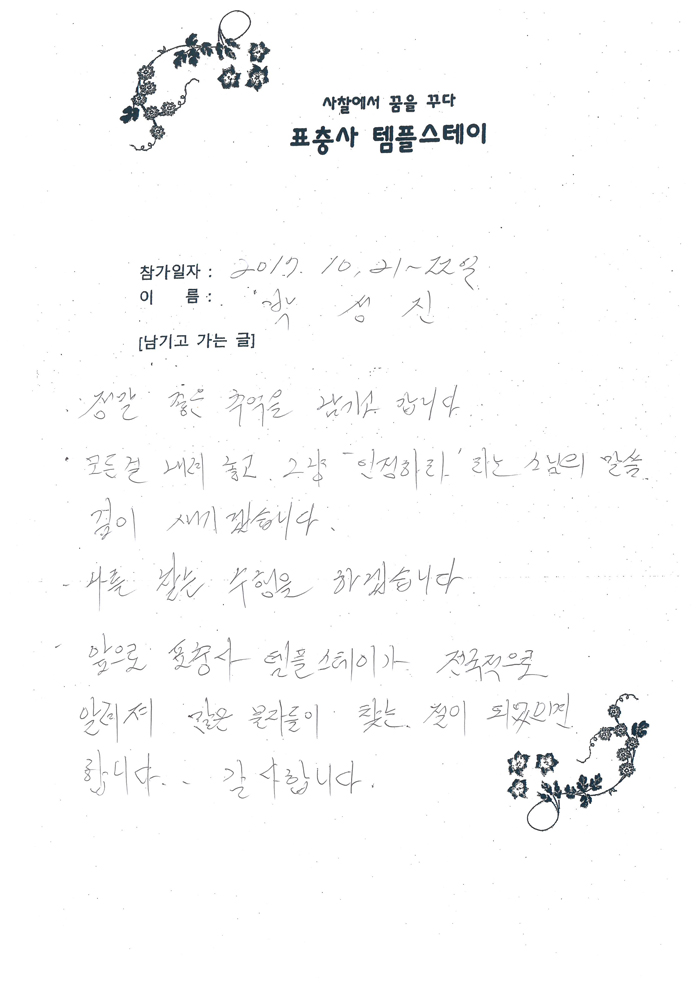 사찰에서 꿈을 꾸다
표충사 템플스테이
참가일자 : 2017. 10, 21~22일
이 름 : 박 성 진
[남기고 가는 글]
· 정말 좋은 추억을 남기고 갑니다.
· 모든걸 내려 놓고. 그냥 "인정하라.' 라는 스님의 말씀.
깊이 새기겠습니다.
- 나를 찾는 수행을 하겠습니다
- 앞으로 표충사 템플스테이가 전국적으로
알려져 많은 불자들이 찾는 절이 되었으면
합니다.. 감사합니다.